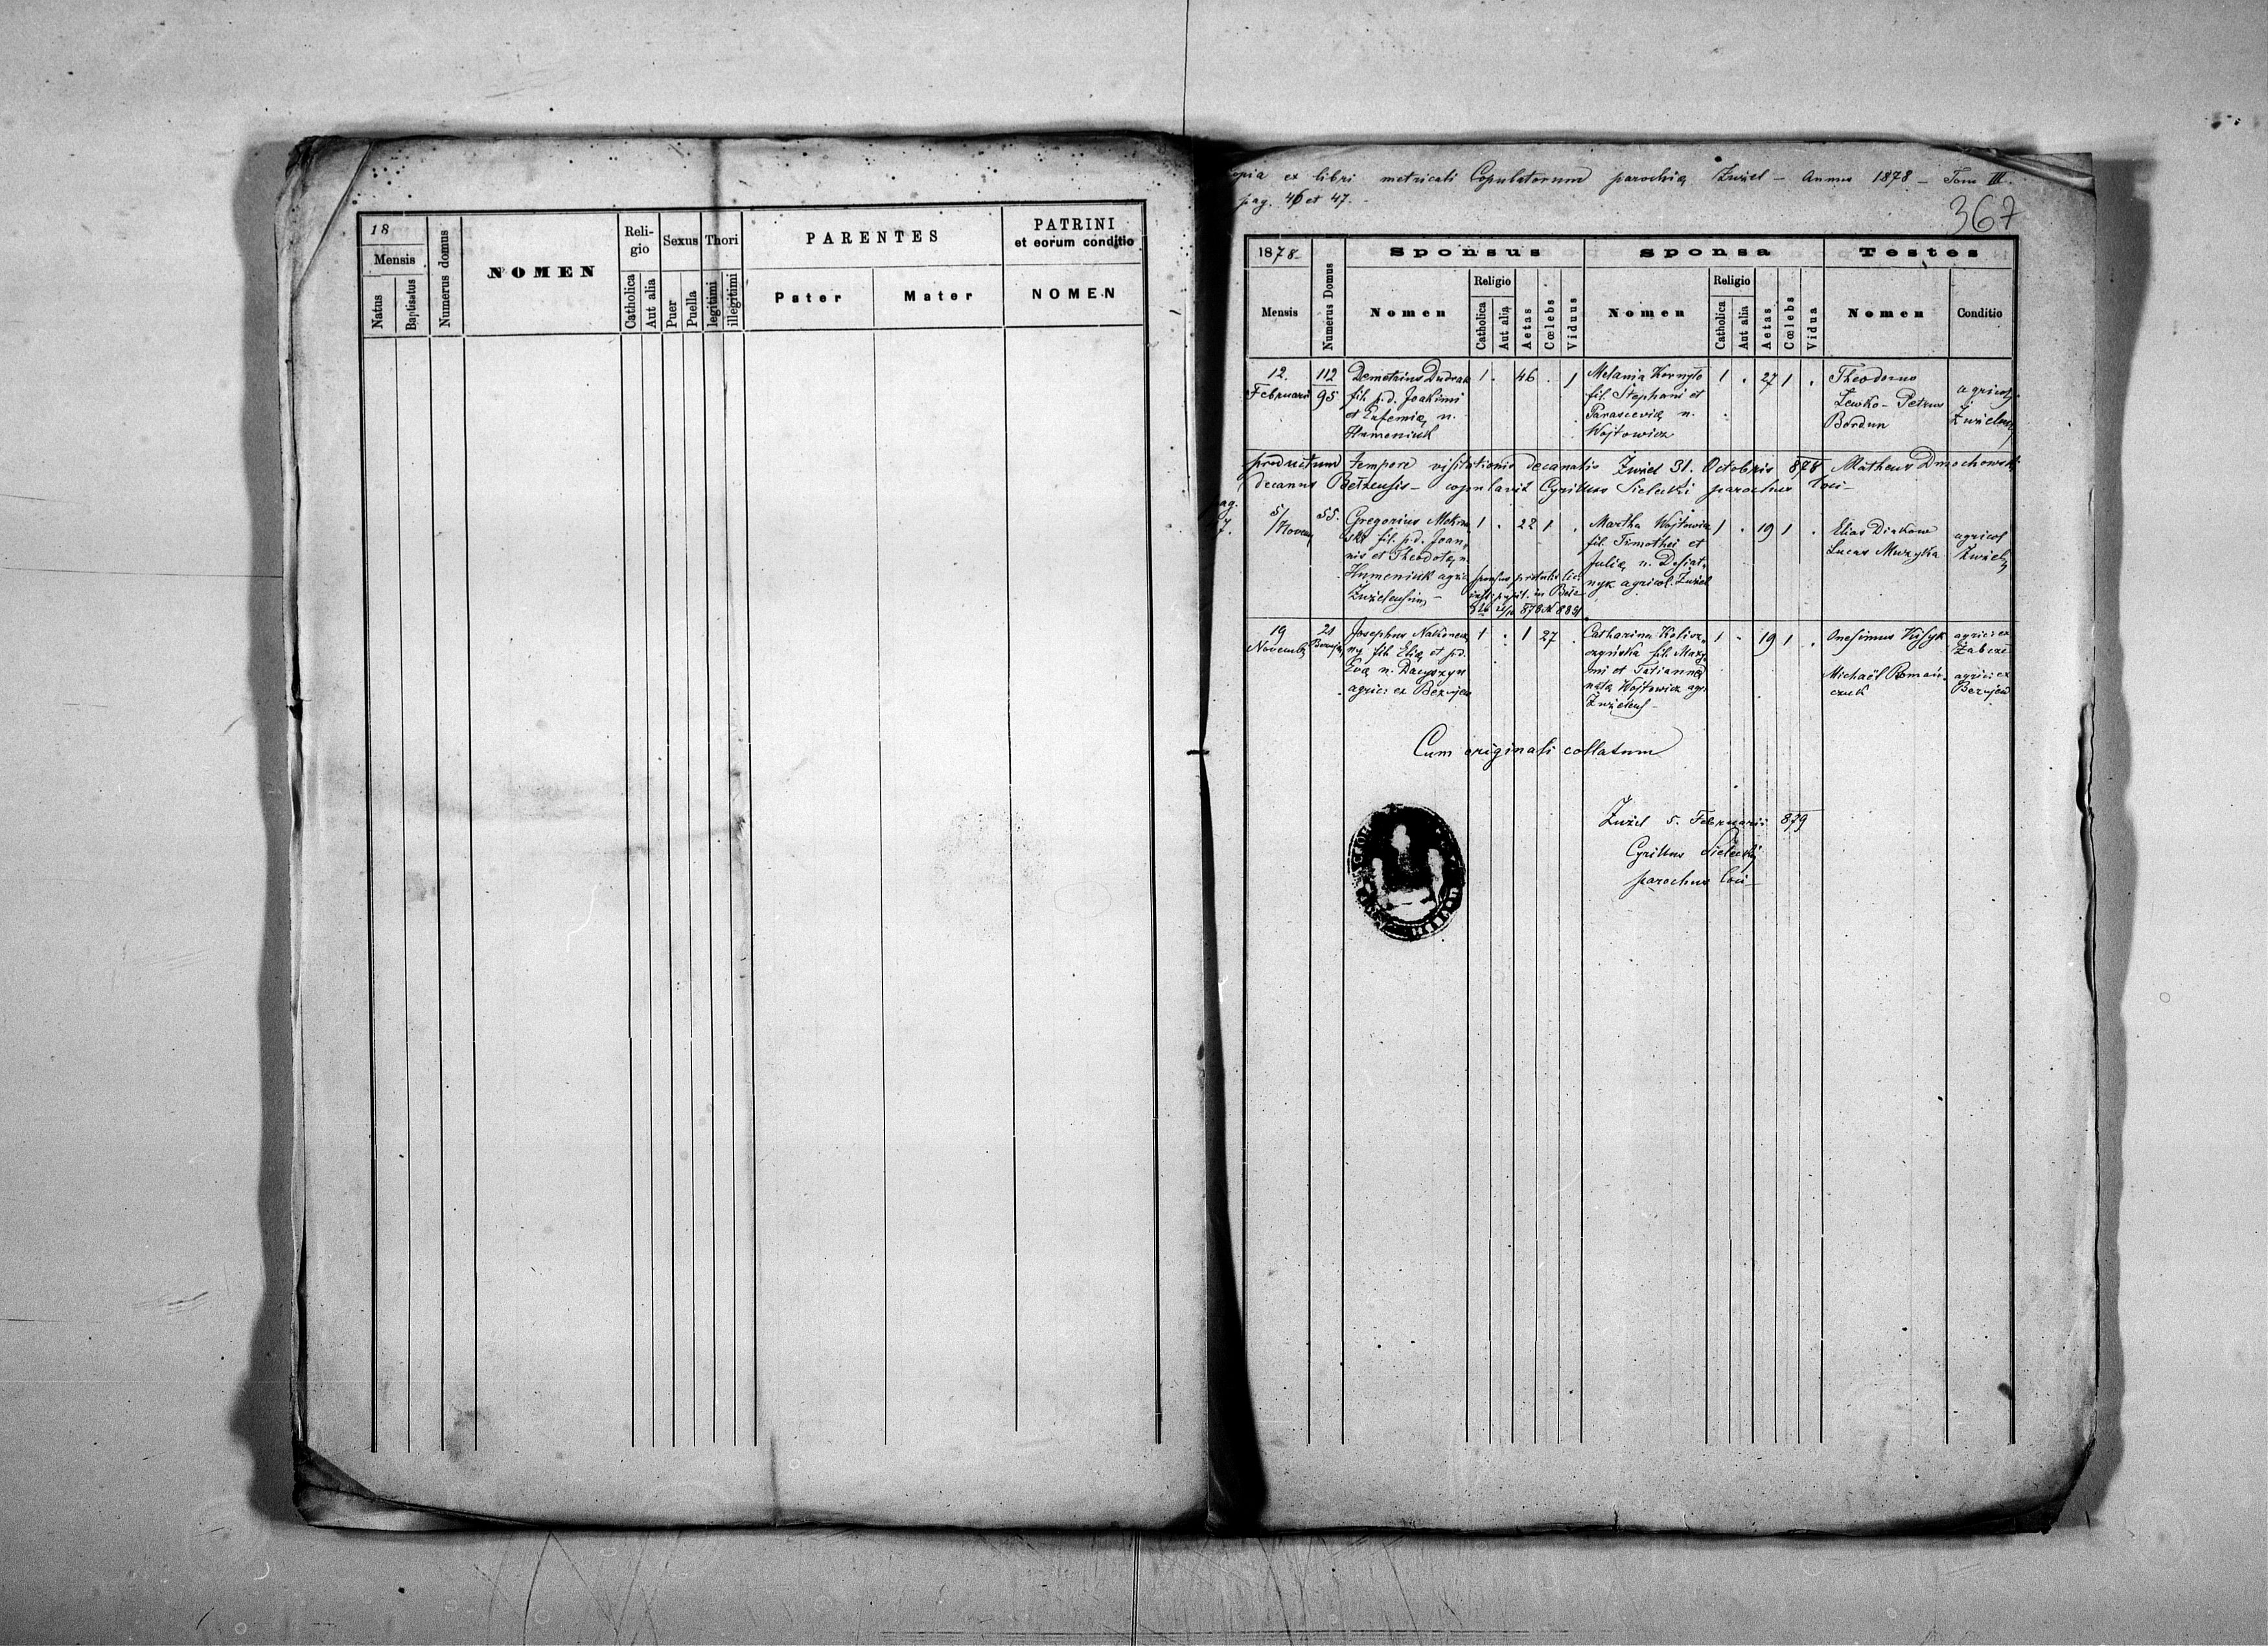 18
Mensis
Natus
Baptisatus
Numerus domus
NOMEN
Reli-
gio
Catholica
Aut alia
Sexus
Puer
Puella
Thori
legitimi
illegitimi
PARENTES
Pater
Mater
PATRINI
et eorum conditio
NOMEN
opia ex libri metricali Copulatorum parochię Żużel - Annus 1878 - Tom III.
pag. 46 et 47. -
367
1878
Mensis
Numerus Domus
Sponsus
Nomen
Religio
Catholica
Aut alia
Aetas
Cœlebs
Viduus
Sponsa
Nomen
Religio
Catholica
Aut alia
Aetas
Cœlebs
Vidua
Testes
Nomen
Conditio
12.
Februarii
112
95
Demetrius Dudrak
fil. p.d. Joakimi
et Eufemię n.
Humeniuk
1 . 46 . 1
Melania Kornyło
fil. Stephani et
Parascevię n.
Wojtowicz
1 . 27 1 .
Theodorus
Lewko - Petrus
Bordun
agricolę
Żużelens
productum tempore visitationis decanalis Żużel 31. Octobris 878 Matheus Dmochowski
decanus Bełzensis - copulavit Cyrillus Sielecki parochus loci -
ag.
7.
5/
Novem
55.
Gregorius
fil. p.d. Joan
nis et Theodotę n.
Humeniuk agric
Żużelensium -
1 . 22 1 .
Martha Wojtowicz
fil. Timothei et
Julię n. Desiat
nyk agricol. Żużel
1 . 19 1 .
Elias Diakow
Lucas Muzyka
agricol
Żużel
19
Novemb
21
Josephus Nakonecz
ny fil. Elię et p.d.
Evę n.
agric: ex Bezejow
1 . 1 27 .
Catharina Kolisz
czyńska fil. Maxy
mi et Tatiannę
natę Wojtowicz agr.
Żużelens -
1 . 19 1 .
Onesimus Kysyk
agric: ex
Żabcze
Michaël Romań
czuk
agric: ex
Bezejow
Cum originali collatum
Żużel 5. Februarii 879
Cyrillus Sielecki
parochus loci